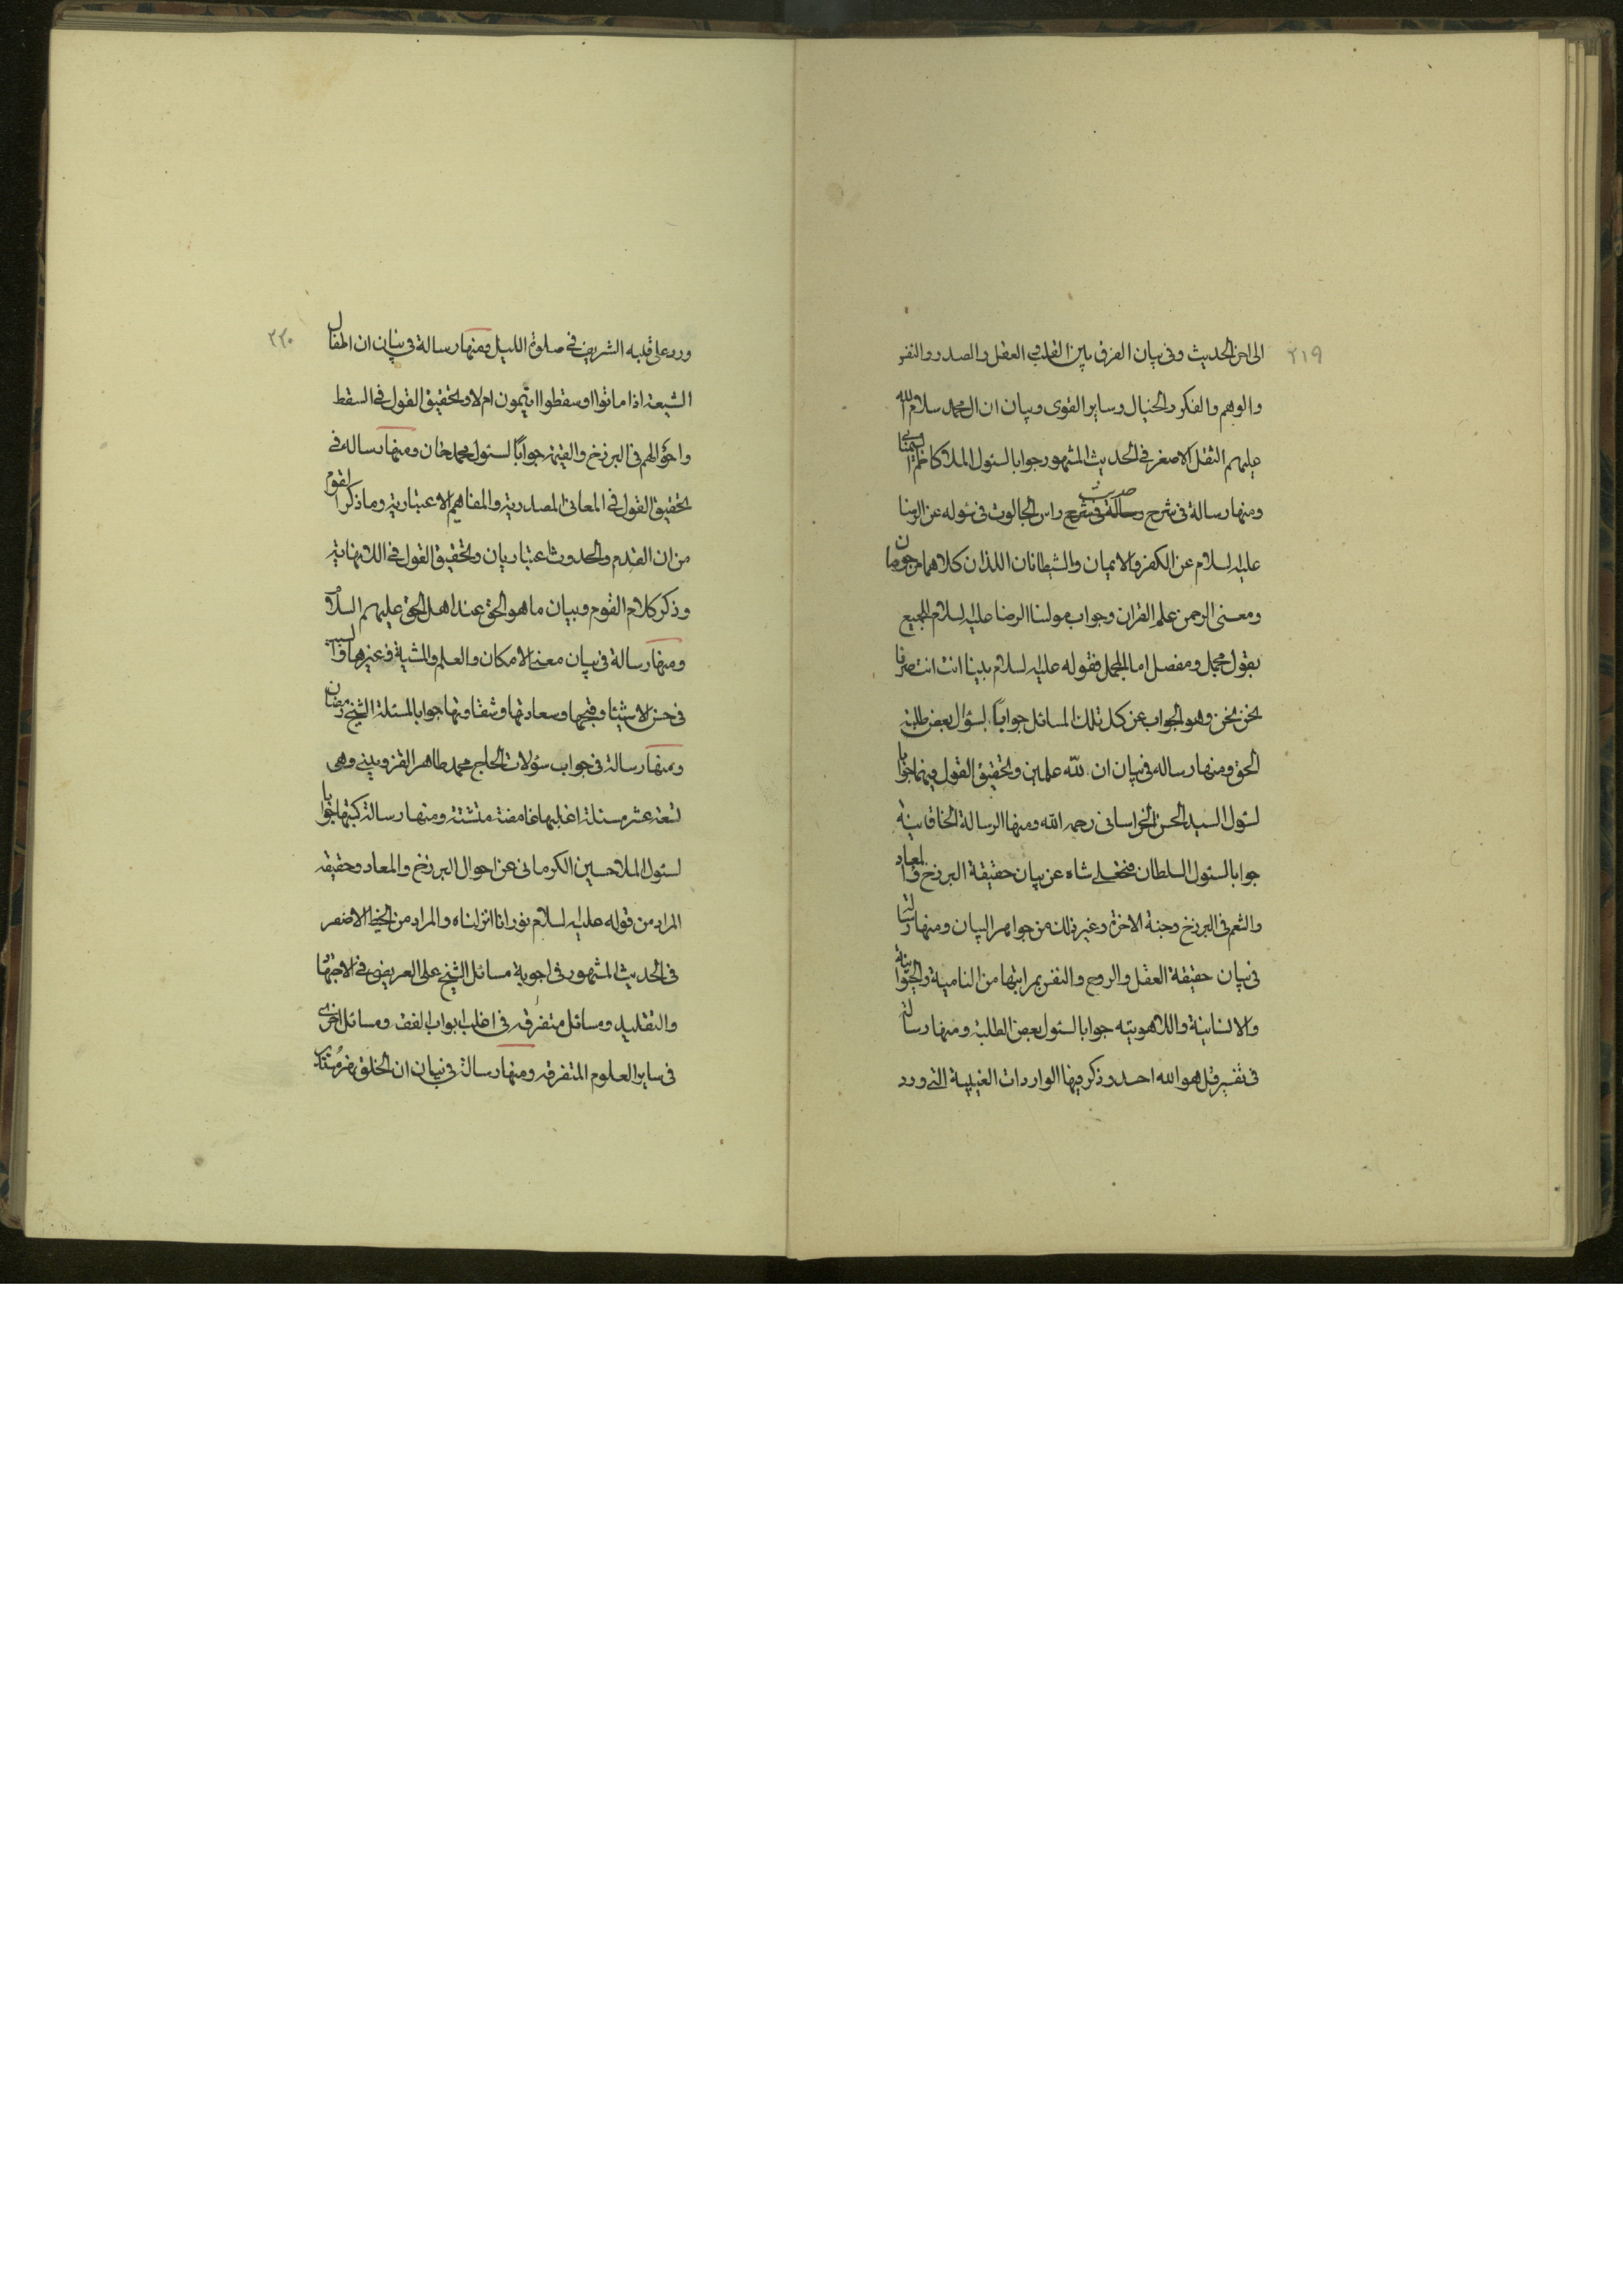 ٢١٩
الى اخر الحديث وفى بيان الفرق بين القلب و العقل والصدر والنفس
والوهم والفكر والخيال وساير القوى وبيان ان ال محمد سلام الله
عليهم الثقل الاصغر فى الحديث المشهور جوابا لسئول الملا كاظم السمنانى
ومنها رسالة فى شرح رسالة فى شرح حديث راس الجالوت فى سئوله عن الرضا
عليه السلام عن الكفر والايمان والشيطانان اللذان كلاهما مرجوان
ومعنى الرحمن علم القران وجواب مولنا الرضا عليه السلام للجميع
بقول مجمل ومفصل اما المجمل فقوله عليه السلام بدينا انت انت صرنا
نحن نحن وهو الجواب عن كل تلك المسائل جواباً لسؤال بعض طلبة
الحق ومنها رساله فى بيان ان لله علمين وتحقيق القول فيهما جوابا
لسئول السيد الحسن الخراسانى رحمه الله ومنها الرسالة الخاقانية
جوابا لسئول السلطان فتحعلى شاه عن بيان حقيقة البرزخ والمعاد
والتنعم فى البرزخ وجنة الاخرة وغير ذلك من جواهر البيان ومنها رسالة
فى بيان حقيقة العقل والروح والنفس بمراتبها من النامية والحيوانية
والانسانية واللاهوتيه جوابا لسئول بعض الطلبة ومنها رسالة
فى تفسير قل هو الله احد وذكر فيها الواردات الغيبية التى ورد
٢٢٠
ورد على قلبه الشريف فى صلوة الليل ومنها رسالة فى بيان ان اطفال
الشيعة اذا ماتوا او سقطوا ايتمون ام لا وتحقيق القول فى السقط
واحوالهم فى البرزخ والقيمة جواباً لسئول محمد خان ومنها رساله فى
تحقيق القول فى المعانى المصدرية والمفاهيم الاعتبارية وما ذكر القوم
من ان القدم والحدوث اعتباريان وتحقيق القول فى اللانهاية
وذكر كلام القوم وبيان ما هو الحق عند اهل الحق عليهم السلام
ومنها رسالة فى بيان معنى الامكان والعلم والمشية وغيرها والسر
فى حسن الاشيئا وقبحها وسعادتها وشقاوتها جوابا لمسئلة الشيخ رمضان
ومنها رسالة فى جواب سؤلات الحاج محمد طاهر القزوينى وهى
تسعة عشر مسئلة اغلبها غامضة متشتة ومنها رسالة كتبها جوابا
لسئول الملا حسين الكرمانى عن احوال البرزخ والمعاد وحقيقه
المراد من قوله عليه السلام نور انا انزلناه والمراد من الخيط الاصفر
فى الحديث المشهور فى اجوبة مسائل الشيخ على العريض فى الاجتهاد
والتقليد ومسائل متفرقه فى اغلب ابواب الفقه ومسائل اخرى
فى ساير العلوم المتفرقه ومنها رسالة فى بيان ان الخلق